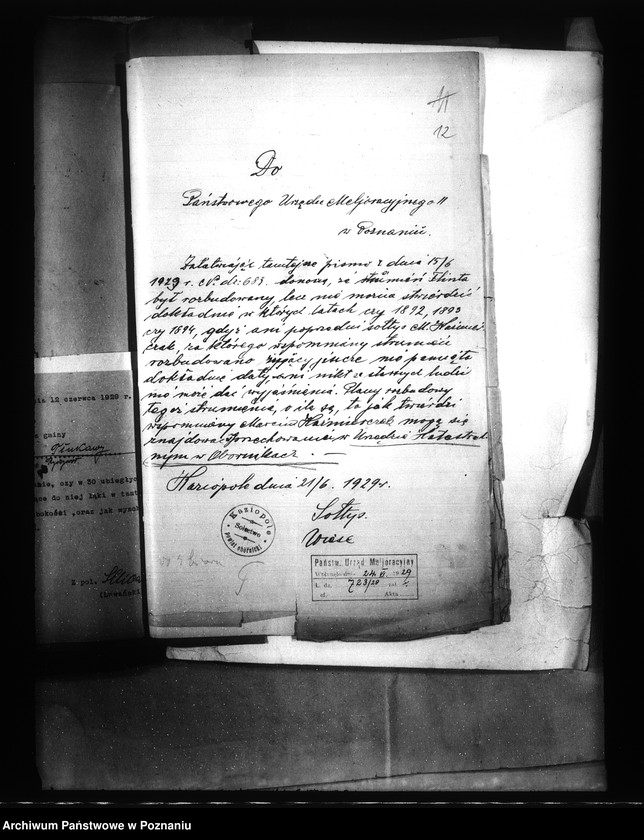 11
12
Do
Państwowego Urzędu Meljoracyjnego
w Poznaniu.
Załatwiając tamtejsze pismo z dnia 15/6
1929 r. N. dz. 683. donoszę, że strumień Flinta
był rozbudowany, lecz nie można stwierdzić
dokładnie w których latach czy 1892, 1893
czy 1894, gdyż ani poprzedni sołtys M. Kaźmier-
czak, za którego wspomniany strumień
rozbudowano żyjący jeszcze nie pamięta
dokładnie daty, ani nikt z starych ludzi
nie może dać wyjaśnienia. Plany rozbudowy
tegoż strumienia, o ile są, to jak twierdzi
wspomniany Marcin Kaźmierczak mogą się
znajdować przechowane w Urzędzie Katastral-
nym w Obornikach. —
Kaziopole dnia 21/6. 1929 r.
Sołtys.
Wiese
Kaziopole
Sołectwo
powiat obornicki
Państw. Urząd Meljoracyjny
24 6 1929
L. dz. 723/29
Akta
nia 12 czerwca 1929 r.
gminy
nie, czy w 30 ubiegłych
ące do niej łąki w
okości, oraz jak wysok
Z pol.
Archiwum Państwowe w Poznaniu